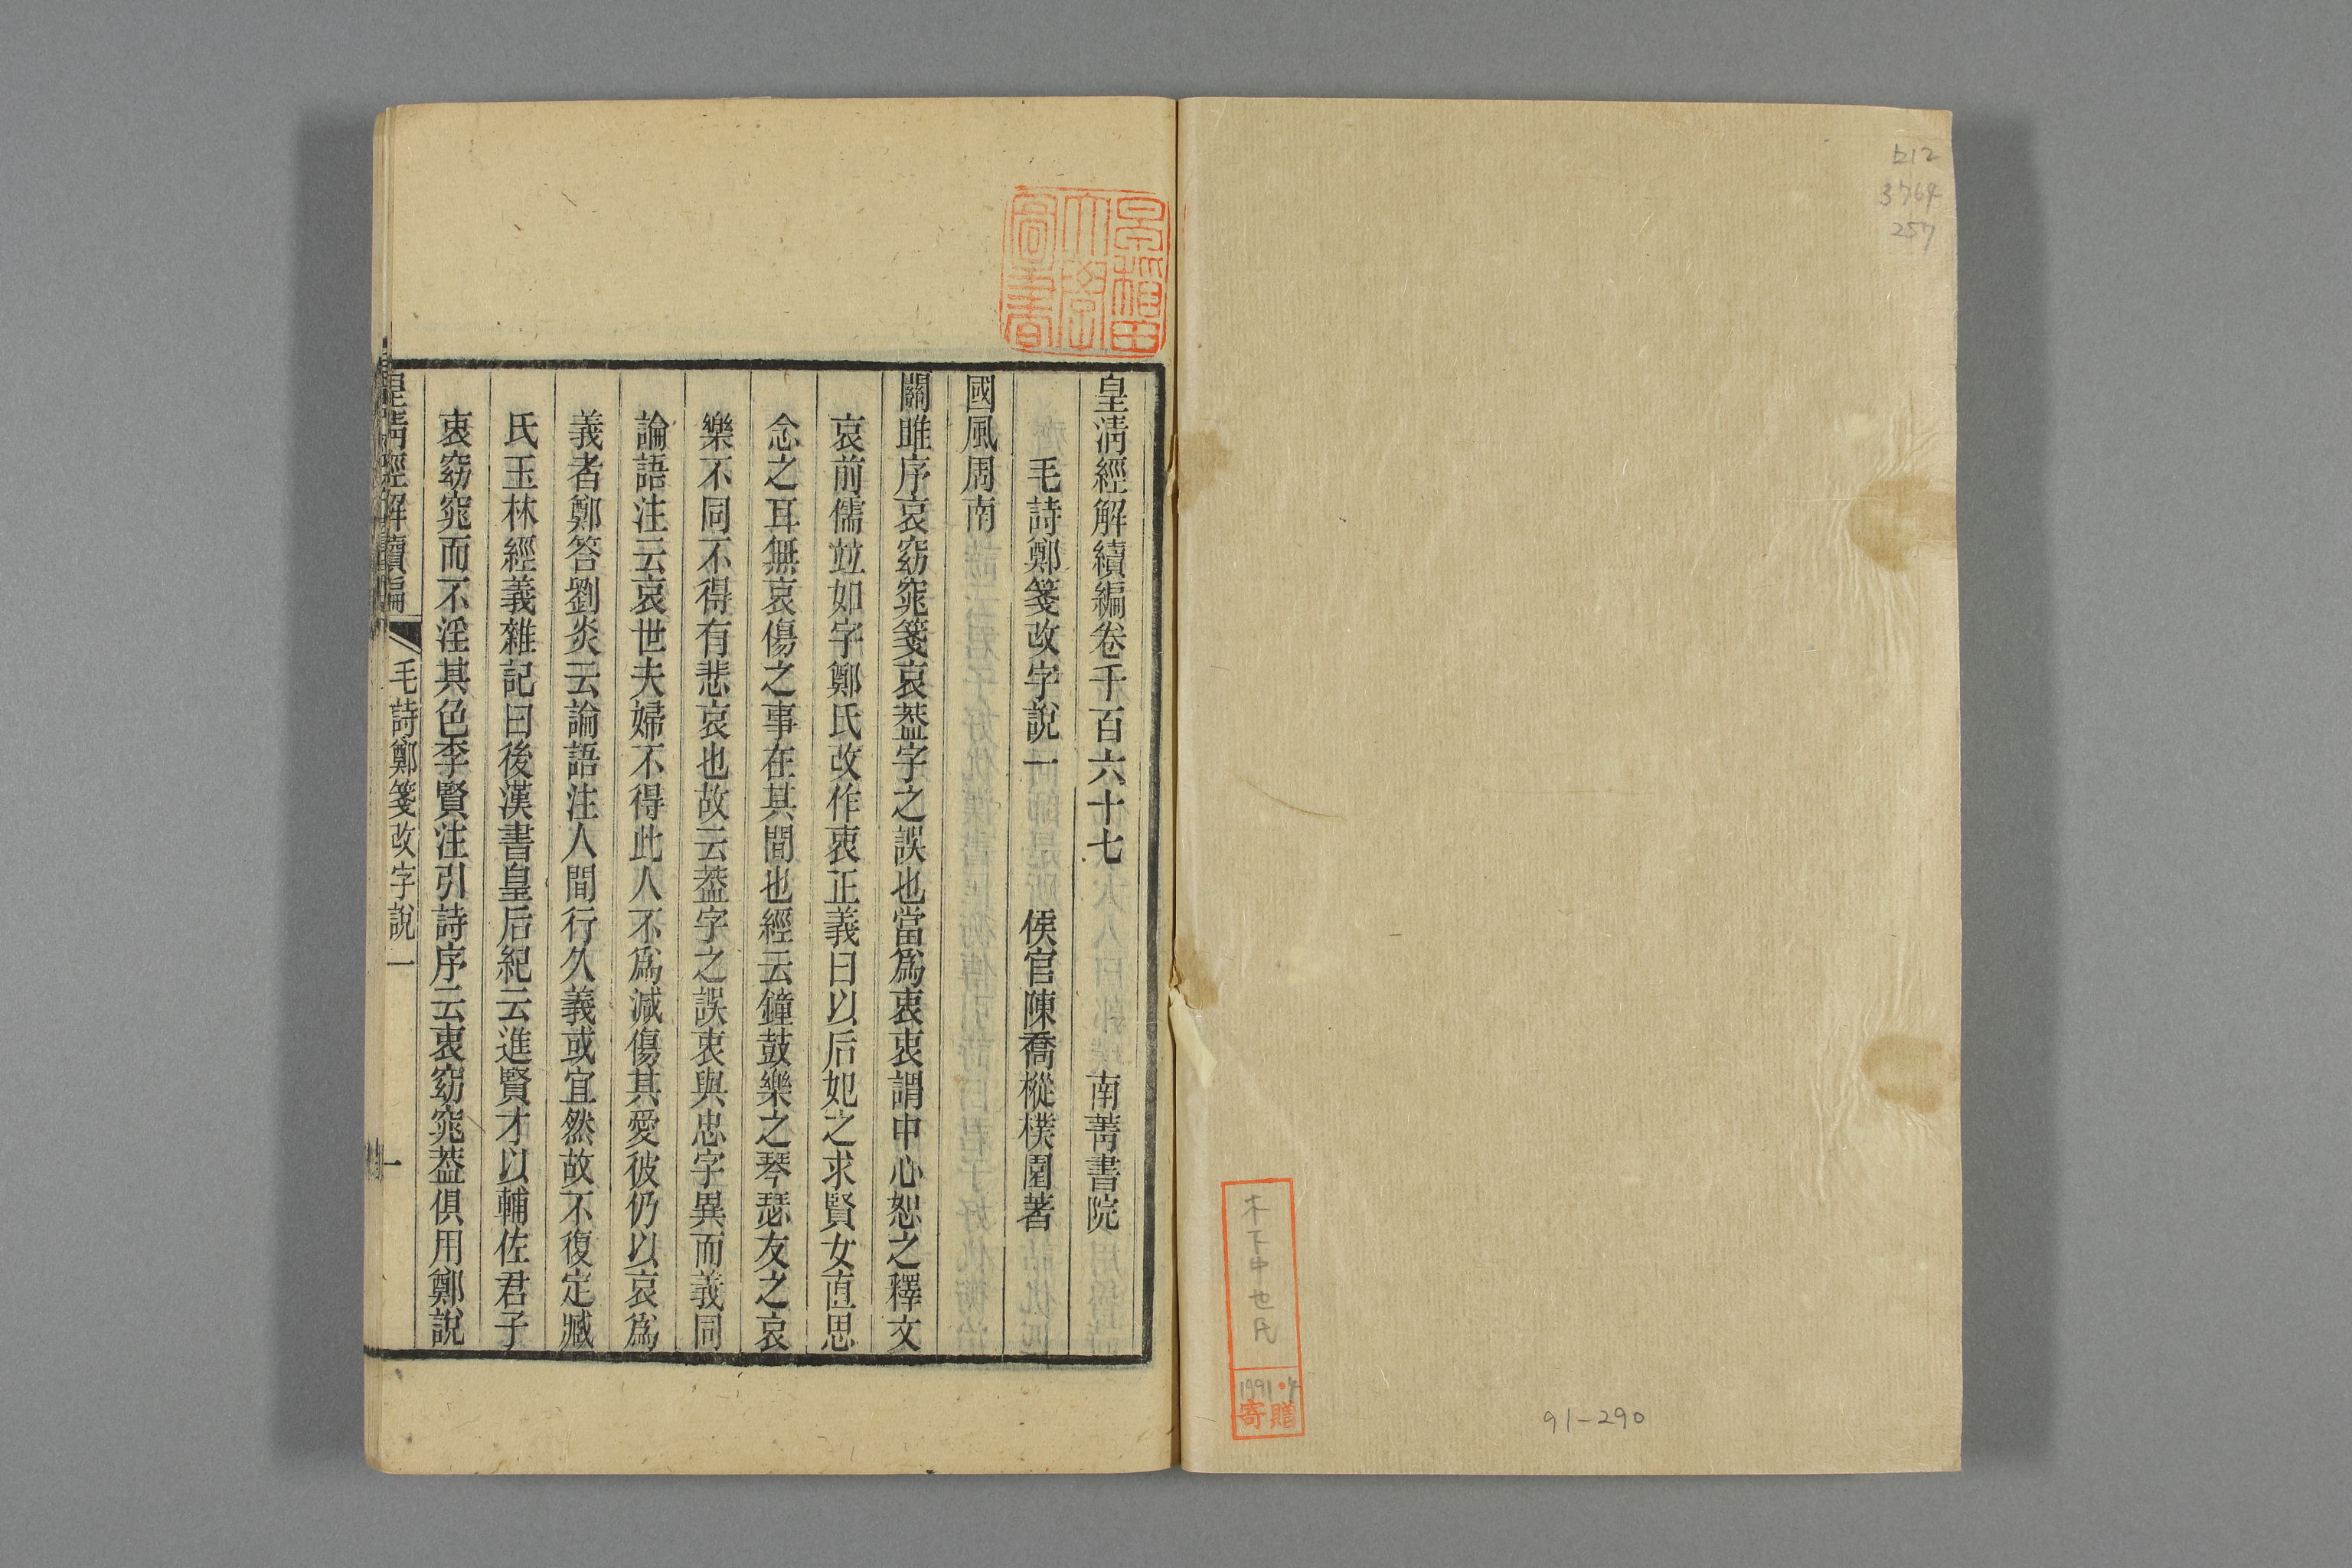 ロ12
3764
257
木下中也氏
1991.4
寄贈
91-290
早稲田大學圖書
皇淸經解續編卷千百六十七 南菁書院
毛詩鄭箋改字說一 侯官陳喬樅樸園著
國風周南
關雎序哀窈窕箋哀葢字之誤也當爲衷衷謂中心恕之釋文
哀前儒竝如字鄭氏改作衷正義曰以后妃之求賢女直思
念之耳無哀傷之事在其間也經云鐘鼓樂之琴瑟友之哀
樂不同不得有悲哀也故云葢字之誤衷與忠字異而義同
論語注云哀世夫婦不得此人不爲減傷其愛彼仍以哀爲
義者鄭答劉炎云論語注人間行久義或宜然故不復定臧
氏玉林經義雜記曰後漢書皇后紀云進賢才以輔佐君子
衷窈窕而不淫其色李賢注引詩序云衷窈窕葢俱用鄭說
皇淸經解續編 毛詩鄭箋改字說一 一